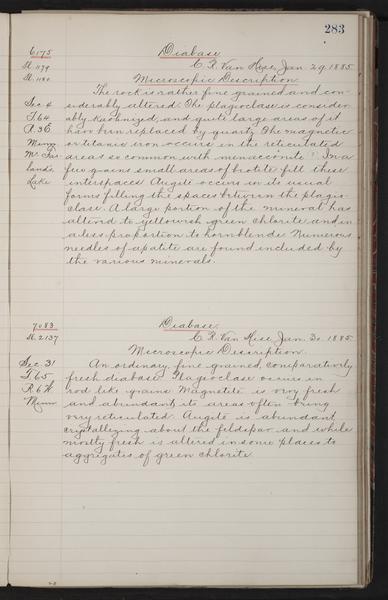 283
6175 Diabase
Sl. 1179 C. R. Van Hise, Jan. 29, 1885
Sl. 1180 Microscopic Description
The rock is rather fine grained and con-
Sec 4 siderably altered. The plagioclase is consider-
T. 64 ably kaolinized, and quite large areas of it
R. 3 E. have been replaced by quartz. The magnetic
Minn or titanic iron occurs in the reticulated
areas so common with menaccanite. In a
few grains small areas of biotite fill these
Lake interspaces. Augite occurs in its usual
forms filling the spaces between the plagio-
clase. A large portion of the mineral has
altered to yellowish green chlorite and in
a less proportion to hornblende. Numerous
needles of apatite are found included by
the various minerals.
7083 Diabase.
Sl. 2137 C. R. Van Hise, Jan. 30, 1885
Microscopic Description.
Sec. 31 An ordinary, fine grained, comparatively
T. 65 fresh diabase. Plagioclase occurs in
R. 6 W. rod like grains. Magnetite is very fresh
Minn and abundant, its areas often being
very reticulated. Augite is abundant
crystallizing about the feldspar and while
mostly fresh is altered in some places to
aggregates of green chlorite.